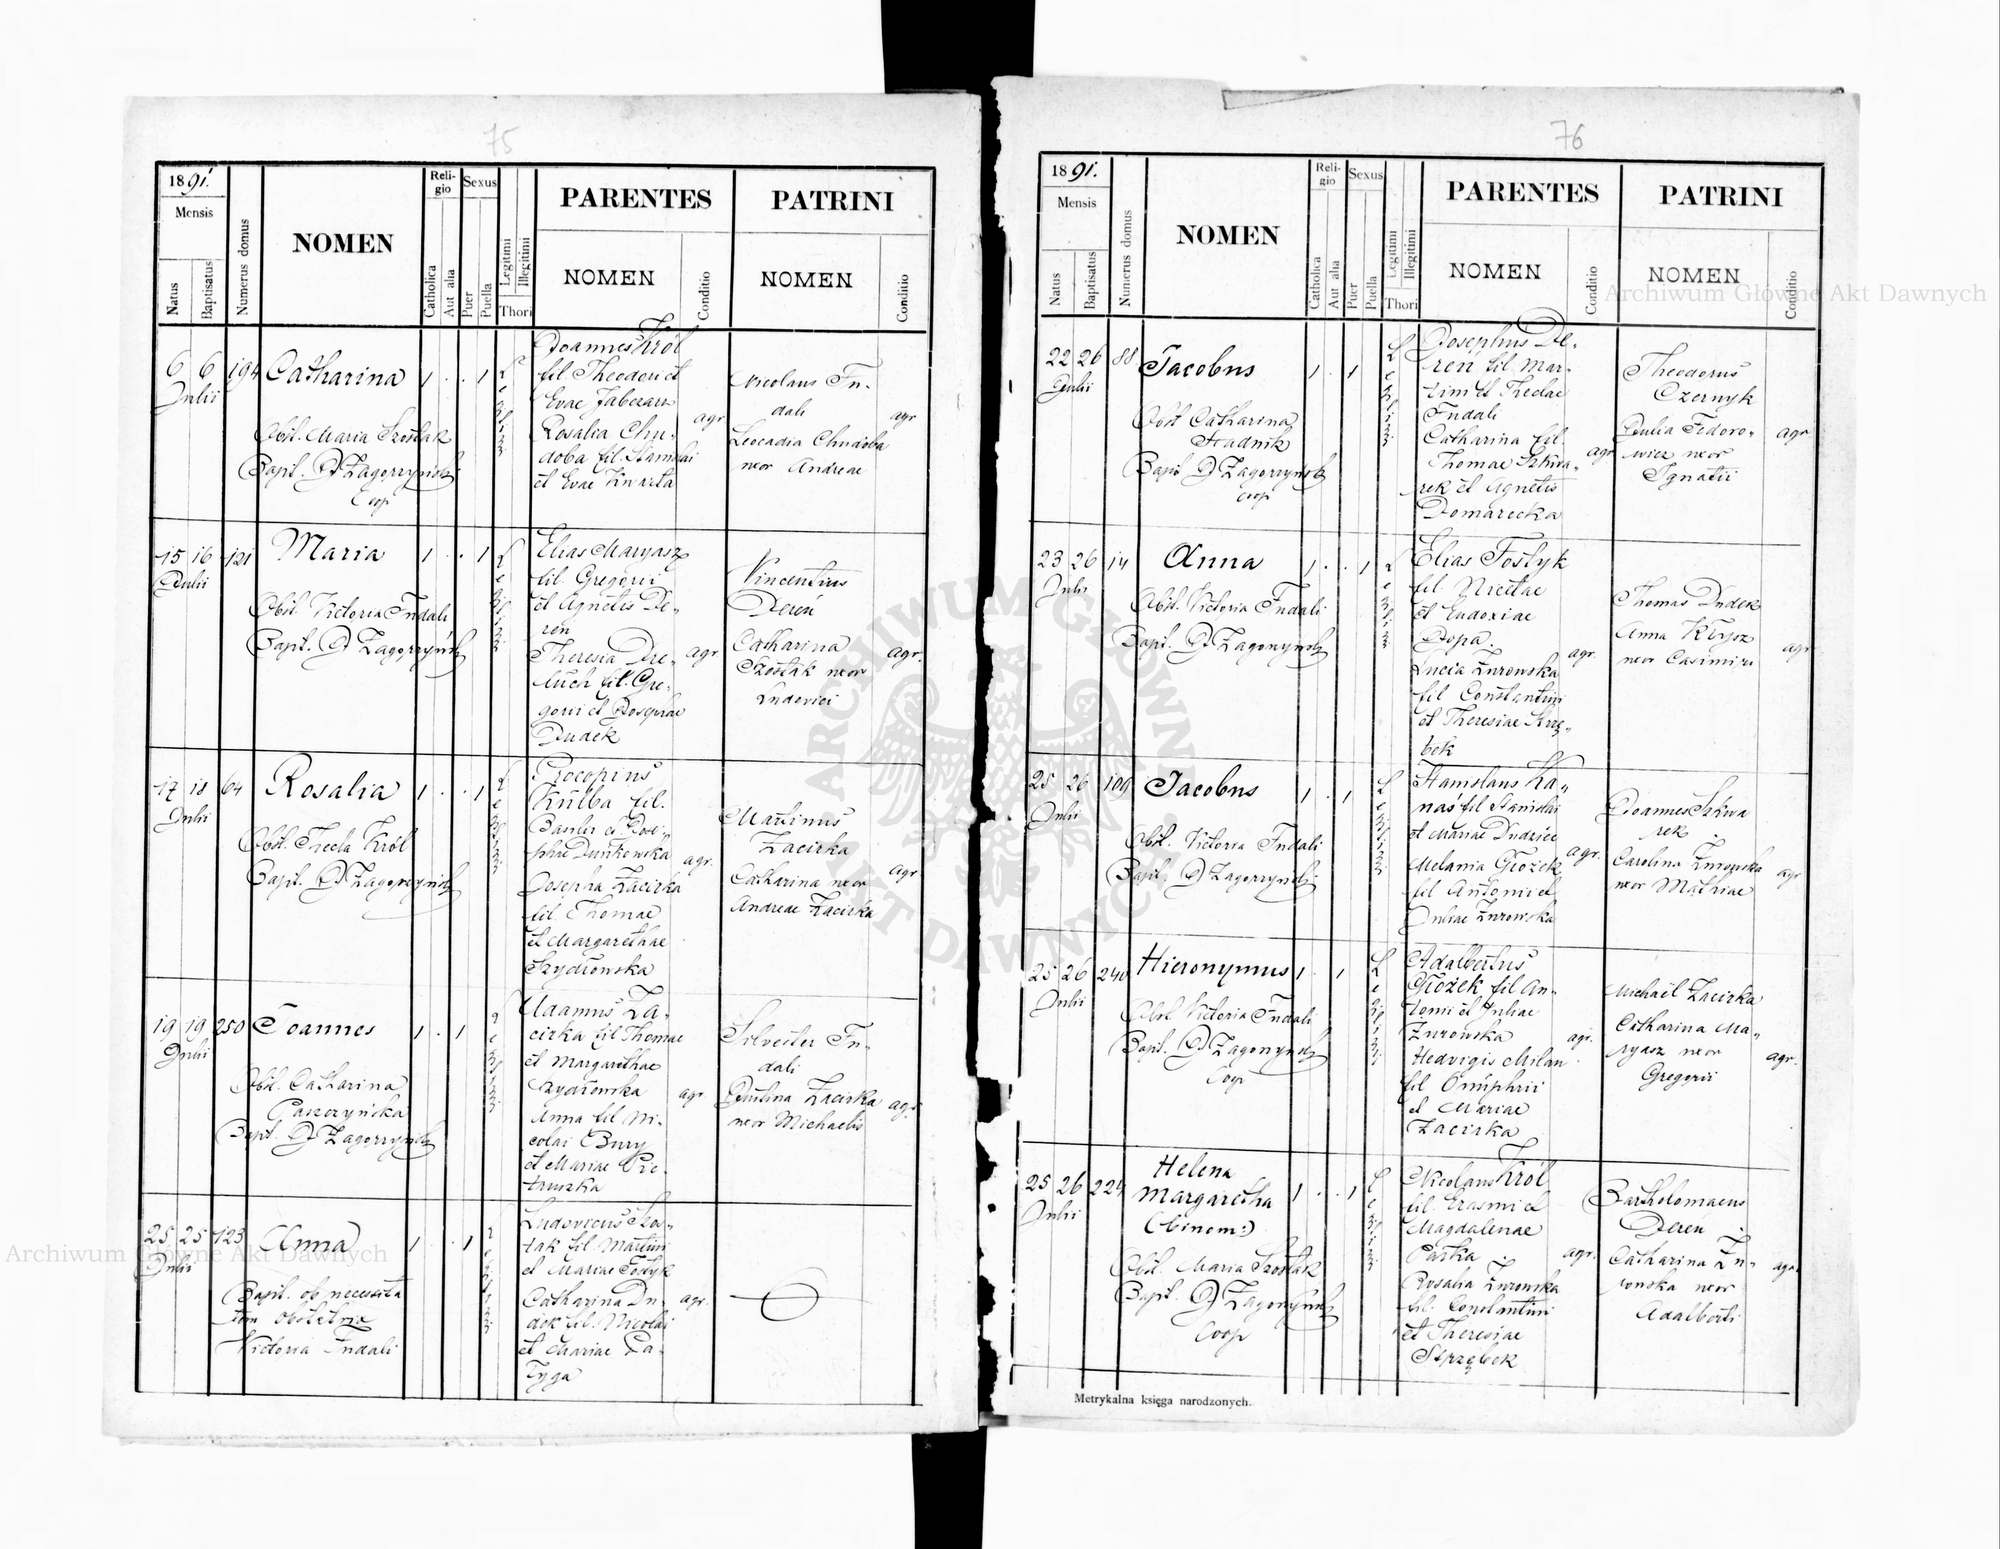 75
1891.
Mensis
Natus
Baptisatus
Numerus domus
NOMEN
Religio
Catholica
Aut alia
Sexus
Puer
Puella
Legitimi
Illegitimi
Thori
PARENTES
NOMEN
Conditio
PATRINI
NOMEN
Conditio
6 6 194 Catharina 1 . . 1
Julii
Obst. Maria Szostak
Bapt. Zagorzyński
Coop
Joannes Król
fil Theodori et
Evae
Rosalia Chu-
doba fil. Stanislai
et Evae Kwarta
agr
Nicolaus Fu-
dali
Leocadia Chudoba
uxor Andreae
agr
15 16 121 Maria 1 . . 1
Julii
Obst. Victoria Fudali
Bapt. Zagorzyński
Elias Maryasz
fil. Gregorii
et Agnetis De-
ren
Theresia Dre-
luch fil. Gre-
gorii et Josephae
Dudek
agr
Vincentius
Dereń
Catharina
Szostak uxor
Ludovici
agr.
17 18 64 Rosalia 1 . . 1
Julii
Obst. Thecla Król
Bapt. Zagorzyński
Procopius
Kulba fil.
Basilii et Jose-
phae Dunkowska
Josepha Zacirka
fil. Thomae
et Margarethae
Szydłowska
agr.
Martinus
Zacirka
Catharina uxor
Andreae Zacirka
agr
19 19 250 Joannes 1 . 1
Julii
Obst. Catharina
Paszczyńska
Bapt. Zagorzyński
Adamus Za-
cirka fil Thomae
et Margarethae
Szydłowska
Anna fil Ni-
colai Bury
et Mariae Pie-
truszka
agr
Silvester Fu-
dali
Paulina Zacirka
uxor Michaelis
agr
25 25 123 Anna 1 . . 1
Julii
Bapt. ob necessita
tem obstetrix
Victoria Fudali
Ludovicus Szos-
tak fil Martini
et Mariae Fostyk
Catharina Du-
dek fil. Nicolai
et Mariae Ła-
tyga
agr.
76
1891.
Mensis
Natus
Baptisatus
Numerus domus
NOMEN
Religio
Catholica
Aut alia
Sexus
Puer
Puella
Legitimi
Illegitimi
Thori
PARENTES
NOMEN
Conditio
PATRINI
NOMEN
Conditio
22 26 88 Jacobus 1 . 1
Julii
Obst Catharina
Stadnik
Bapt. Zagorzyński
coop
Josephus De-
reń fil Mar-
tini et Theclae
Fudali
Catharina fil.
Thomae Szkwa-
rek et Agnetis
Domarecka
agr
Theodorus
Czernyk
Julia Fedoro-
wicz uxor
Ignatii
agr
23 26 14 Anna 1 . . 1
Julii
Obst. Victoria Fudali
Bapt. Zagorzyński
Elias Fostyk
fil Nicetae
et Eudoxiae
Popa.
Lucia Żurowska
fil Constantini
et Theresiae Strzę-
bek
agr.
Thomas Dudek
Anna Kłysz
uxor Casimiri
agr
25 26 109 Jacobus 1 . 1
Julii
Obst. Victoria Fudali
Bapt. Zagorzyński
Stanislaus Ka-
naś fil Stanislai
et Mariae Dudzic
Melania Głożek
fil Antonii et
Juliae Żurowska
agr.
Joannes Szkwa
rek
Carolina Żurowska
uxor Mathiae
agr
25 26 240 Hieronymus 1 . 1
Julii
Obst Victoria Fudali
Bapt. Zagorzyński
Coop
Adalbertus
Głożek fil An-
tonii et Juliae
Żurowska
Hedvigis Milan
fil Onuphrii
et Mariae
Zacirka
agr.
Michaël Zacirka
Catharina Ma-
ryasz uxor
Gregorii
agr.
25 26 224 Helena
Margaretha
(binom:) 1 . . 1
Julii
Obst. Maria Szostak
Bapt. Zagorzyński
Coop
Nicolaus Król
fil. Erasmi et
Magdalenae
Paśka
Rosalia Żurowska
fil. Constantini
et Theresiae
Strzębek
agr.
Bartholomaeus
Dereń
Catharina Żu-
rowska uxor
Adalberti
agr.
Metrykalna księga narodzonych.
Archiwum Główne Akt Dawnych
Archiwum Główne Akt Dawnych
ARCHIWUM GŁÓWNE AKT DAWNYCH